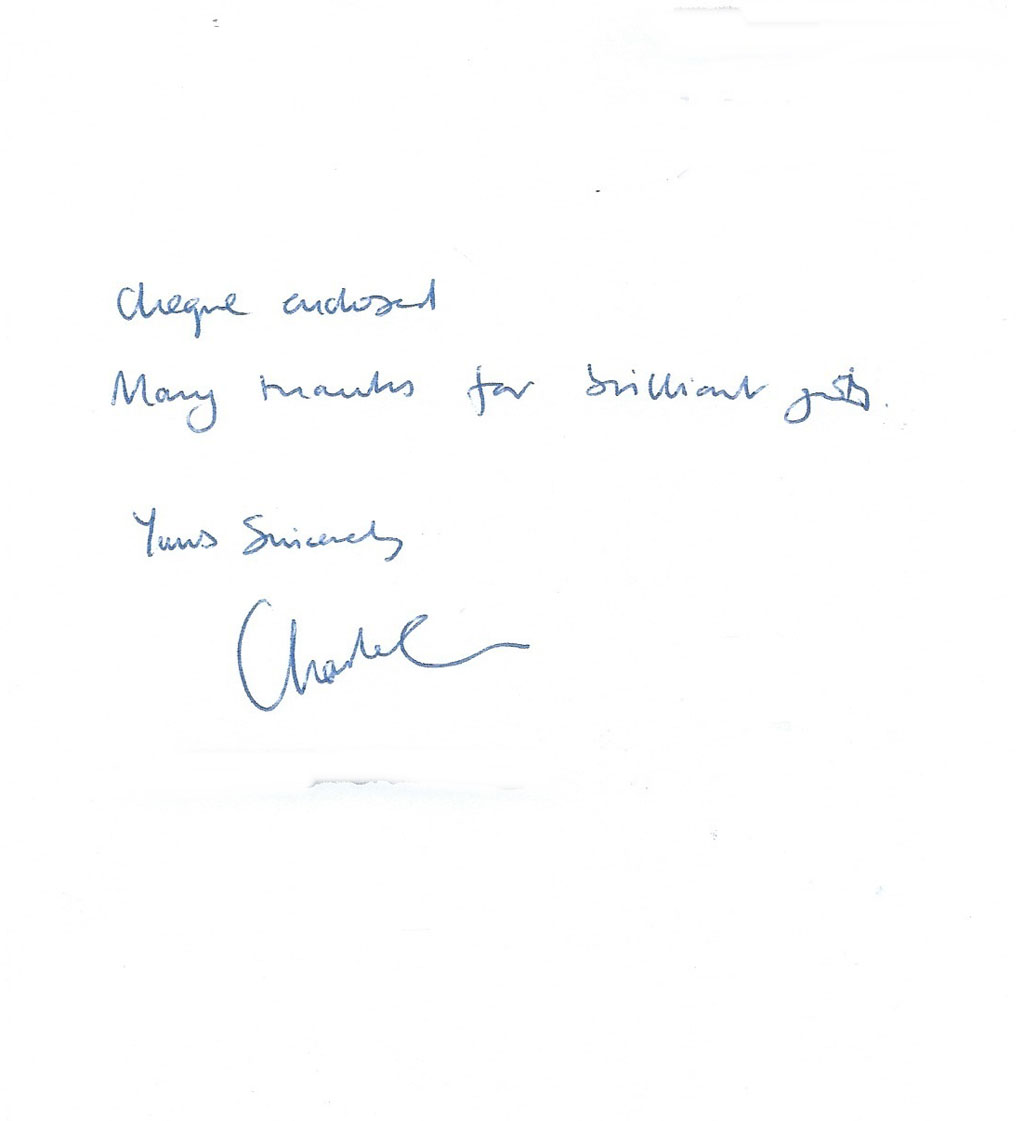 Cheque enclosed
Many thanks for brilliant
Yours Sincerely